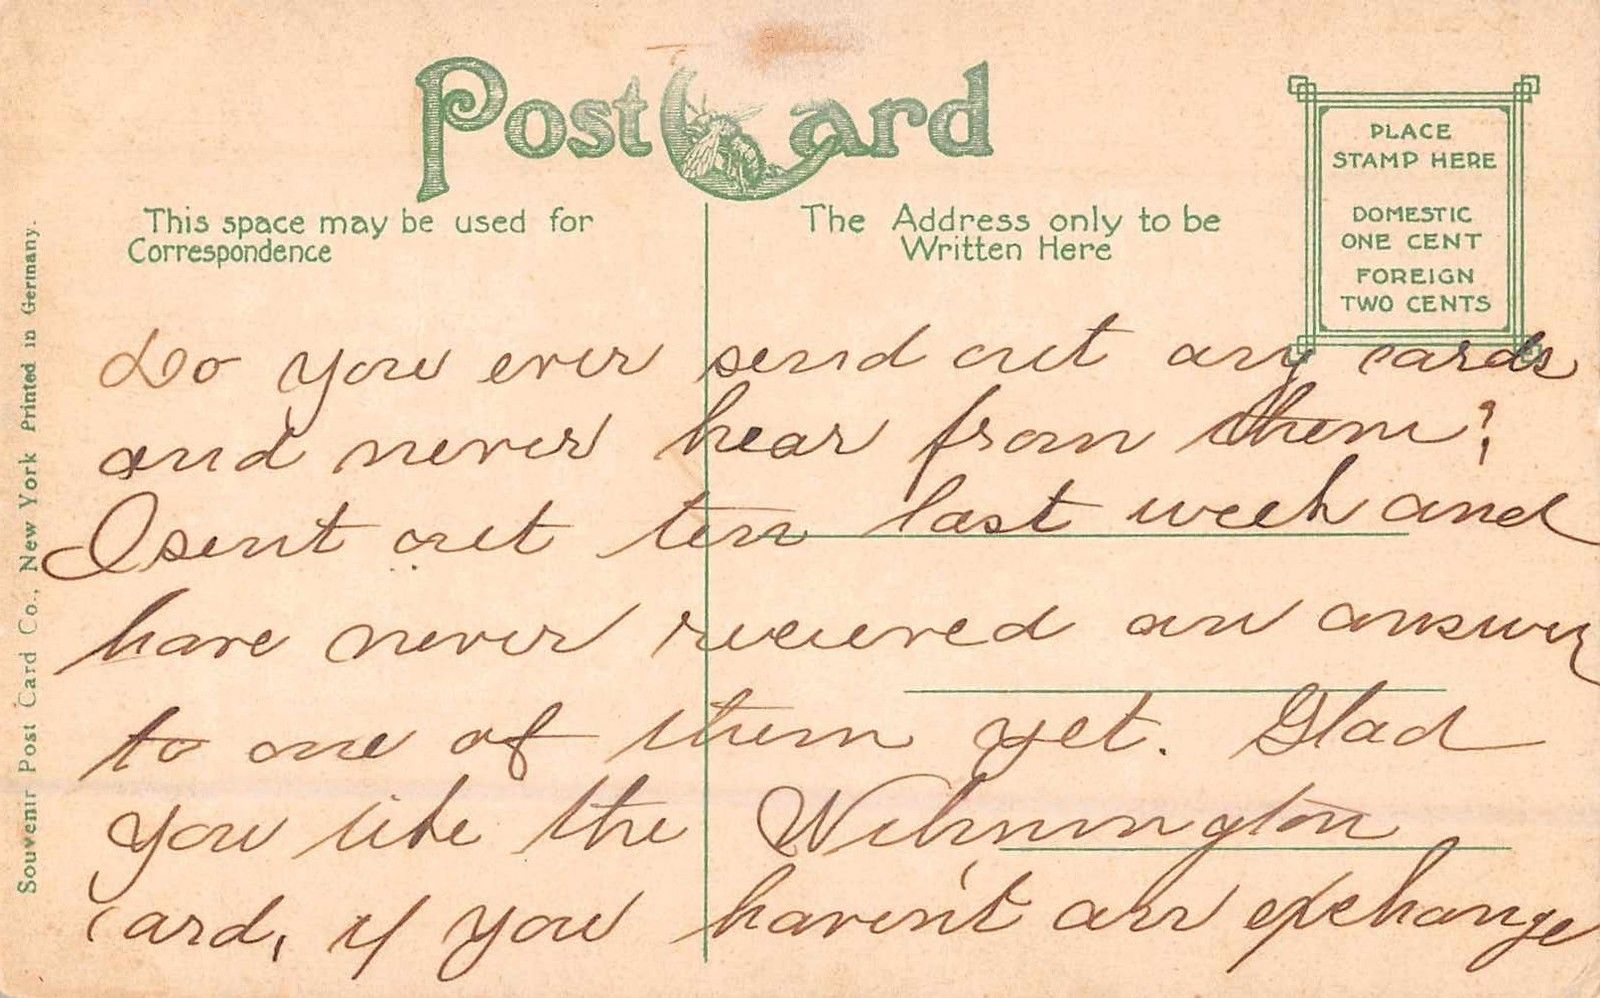 Post Card
This space may be used for
Correspondence
The Address only to be
Written Here
PLACE
STAMP HERE
DOMESTIC
ONE CENT
FOREIGN
TWO CENTS
Souvenir Post Card Co., New York Printed in Germany.
Do you ever send out any cards
and never hear from them?
I sent out ten last week and
have never received an answer
to one of them yet. Glad
you like the Wilmington
card, if you haven't an exchange